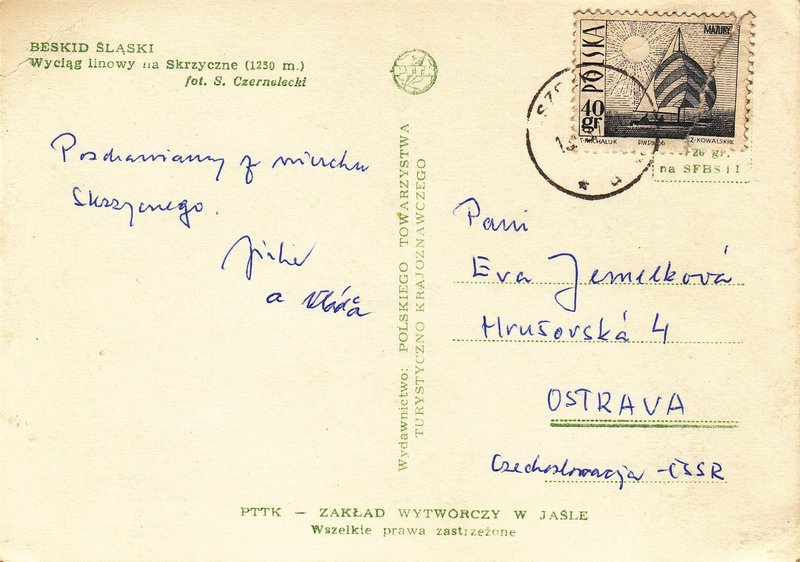 BESKID ŚLĄSKI
Wyciąg linowy na Skrzyczne (1250 m.)
fot. S. Czernelecki
Pozdrawiamy z wierchu
Skrzycznego.
a Vláďa
Wydawnictwo: POLSKIEGO TOWARZYSTWA
TURYSTYCZNO KRAJOZNAWCZEGO
POLSKA
MAZURY
40
gr
T. MICHALUK PWPW 66 Z. KOWALSKI
gr.
na SFBS i I
Pani
Eva Jemelková
Hrušovská 4
OSTRAVA
Czechosłowacja - ČSSR
PTTK — ZAKŁAD WYTWÓRCZY W JAŚLE
Wszelkie prawa zastrzeżone